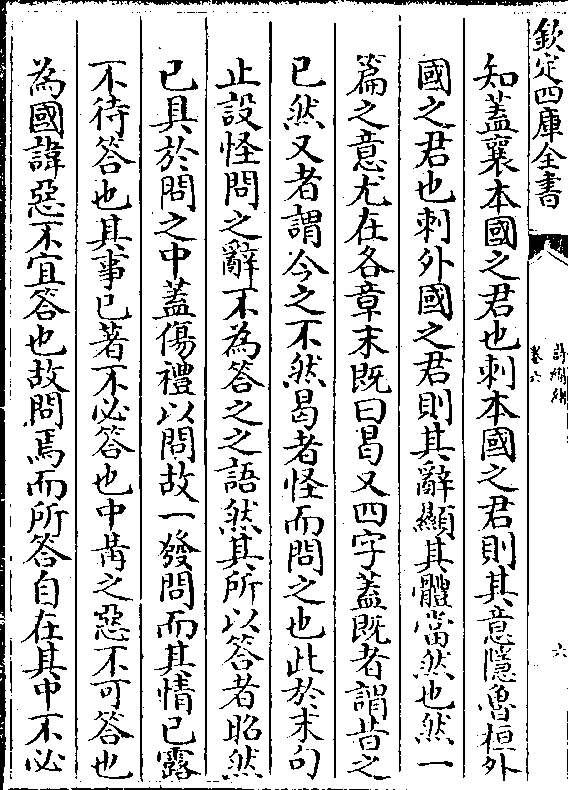 欽定四庫全書
卷六
六
知蓋襄本國之君也刺本國之君則其意隱魯桓外
國之君也刺外國之君則其辭顯其體當然也然一
篇之意尤在各章末既曰曷又四字蓋既者謂昔之
已然又者謂今之不然曷者怪而問之也此於末句
止設怪問之辭不為答之之語然其所以答者昭然
已具於問之中蓋傷禮以問故一發問而其情已露
不待答也其事已著不必答也中冓之惡不可答也
為國諱惡不宜答也故問焉而所答自在其中不必